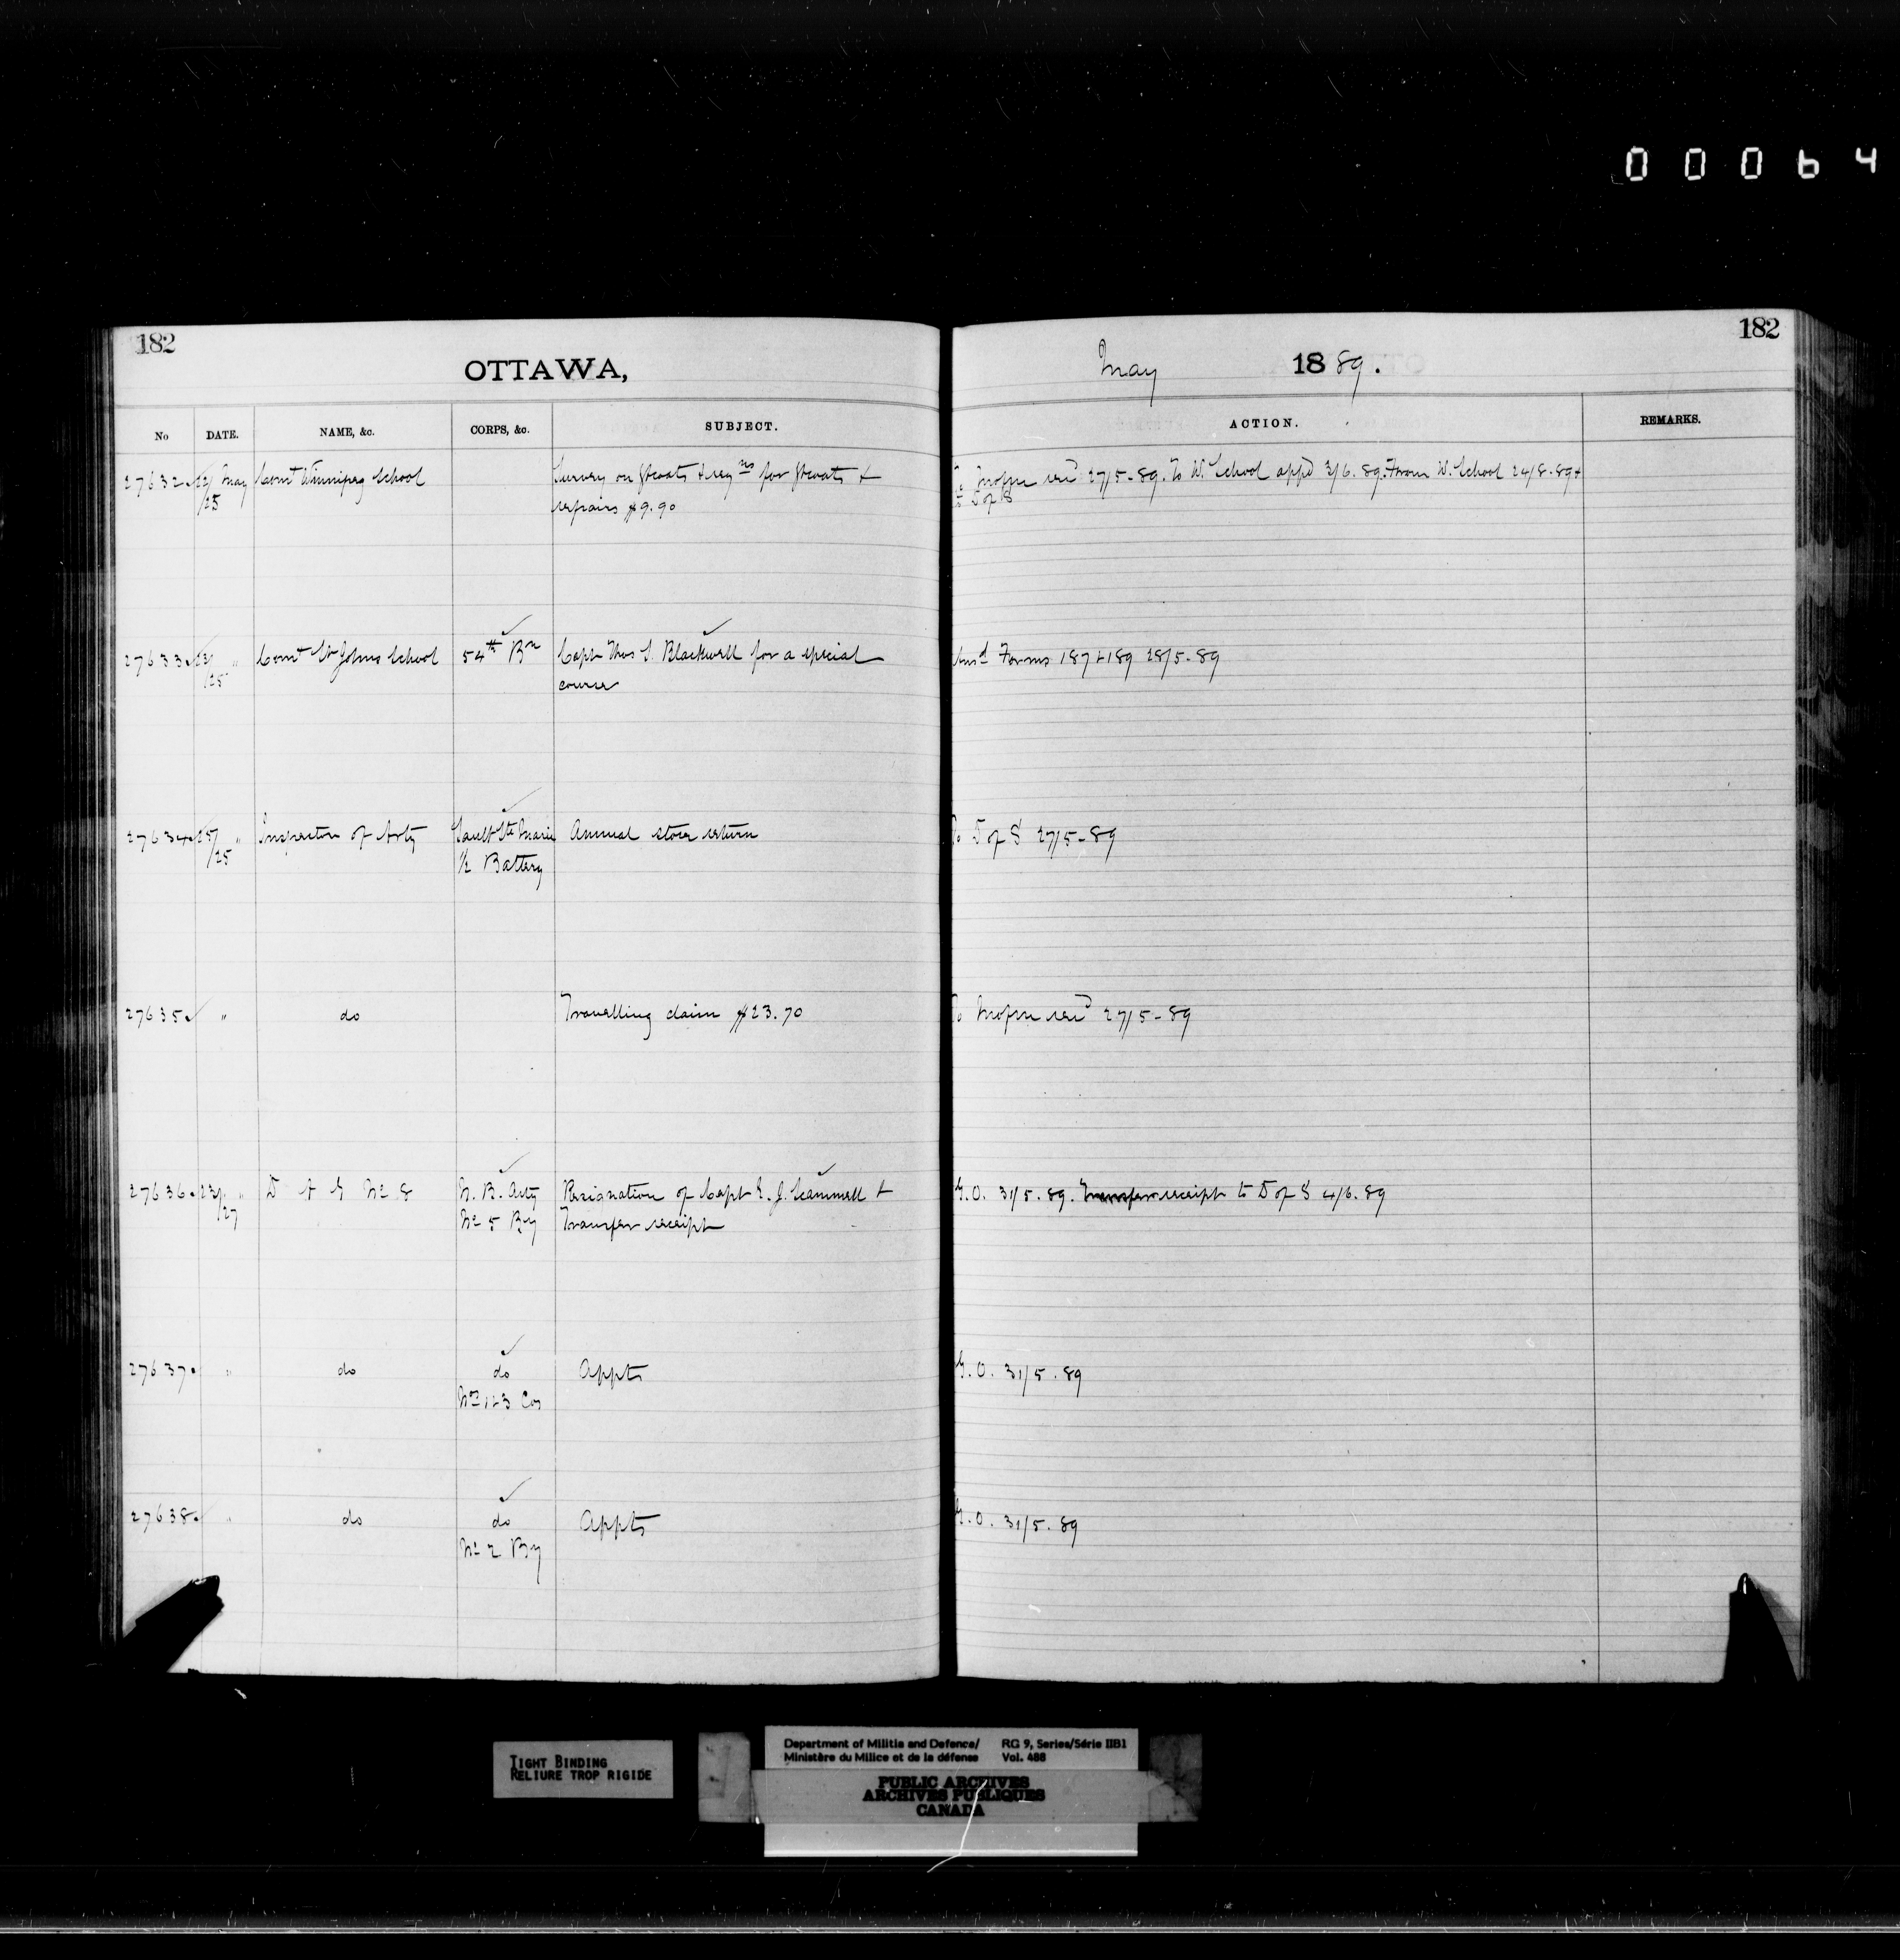 00064
182
OTTAWA,
May 1889.
182
No DATE. NAME, &c. CORPS, &c. SUBJECT. ACTION. REMARKS.
27632 21/25 May Comt Winnipeg School Survey on Gtcoats & reqns for Gtcoats & To W. School appd 3/6.89. From W. School 24/8.89 &
repairs $9.90 to D of S
27633 23/25 " Comt St Johns School 54th Bn Capt Thos S. Blackwell for a special Ansd Forms 187 & 189 28/5-89
course
27634 25/25 " Inspector of Arty Sault Ste Marie Annual store return To D of S 27/5-89
1/2 Battery
27635 " do Travelling claim $23.70 27/5-89
27636 23/27 " D A G No 8 N. B. Arty Resignation of Capt E. J. Scammell & G.O. 31/5.89. Transfer receipt to D of S 4/6.89
No 5 By Transfer receipt
27637 " do do Appts G.O. 31/5.89
Nos 1 & 3 Cos
27638 " do do Appts G.O. 31/5.89
No 2 By
TIGHT BINDING
RELIURE TROP RIGIDE
Department of Militia and Defence/ RG 9, Series/Série IIB1
Ministère du Milice et de la défense Vol. 488
PUBLIC ARCHIVES
ARCHIVES PUBLIQUES
CANADA